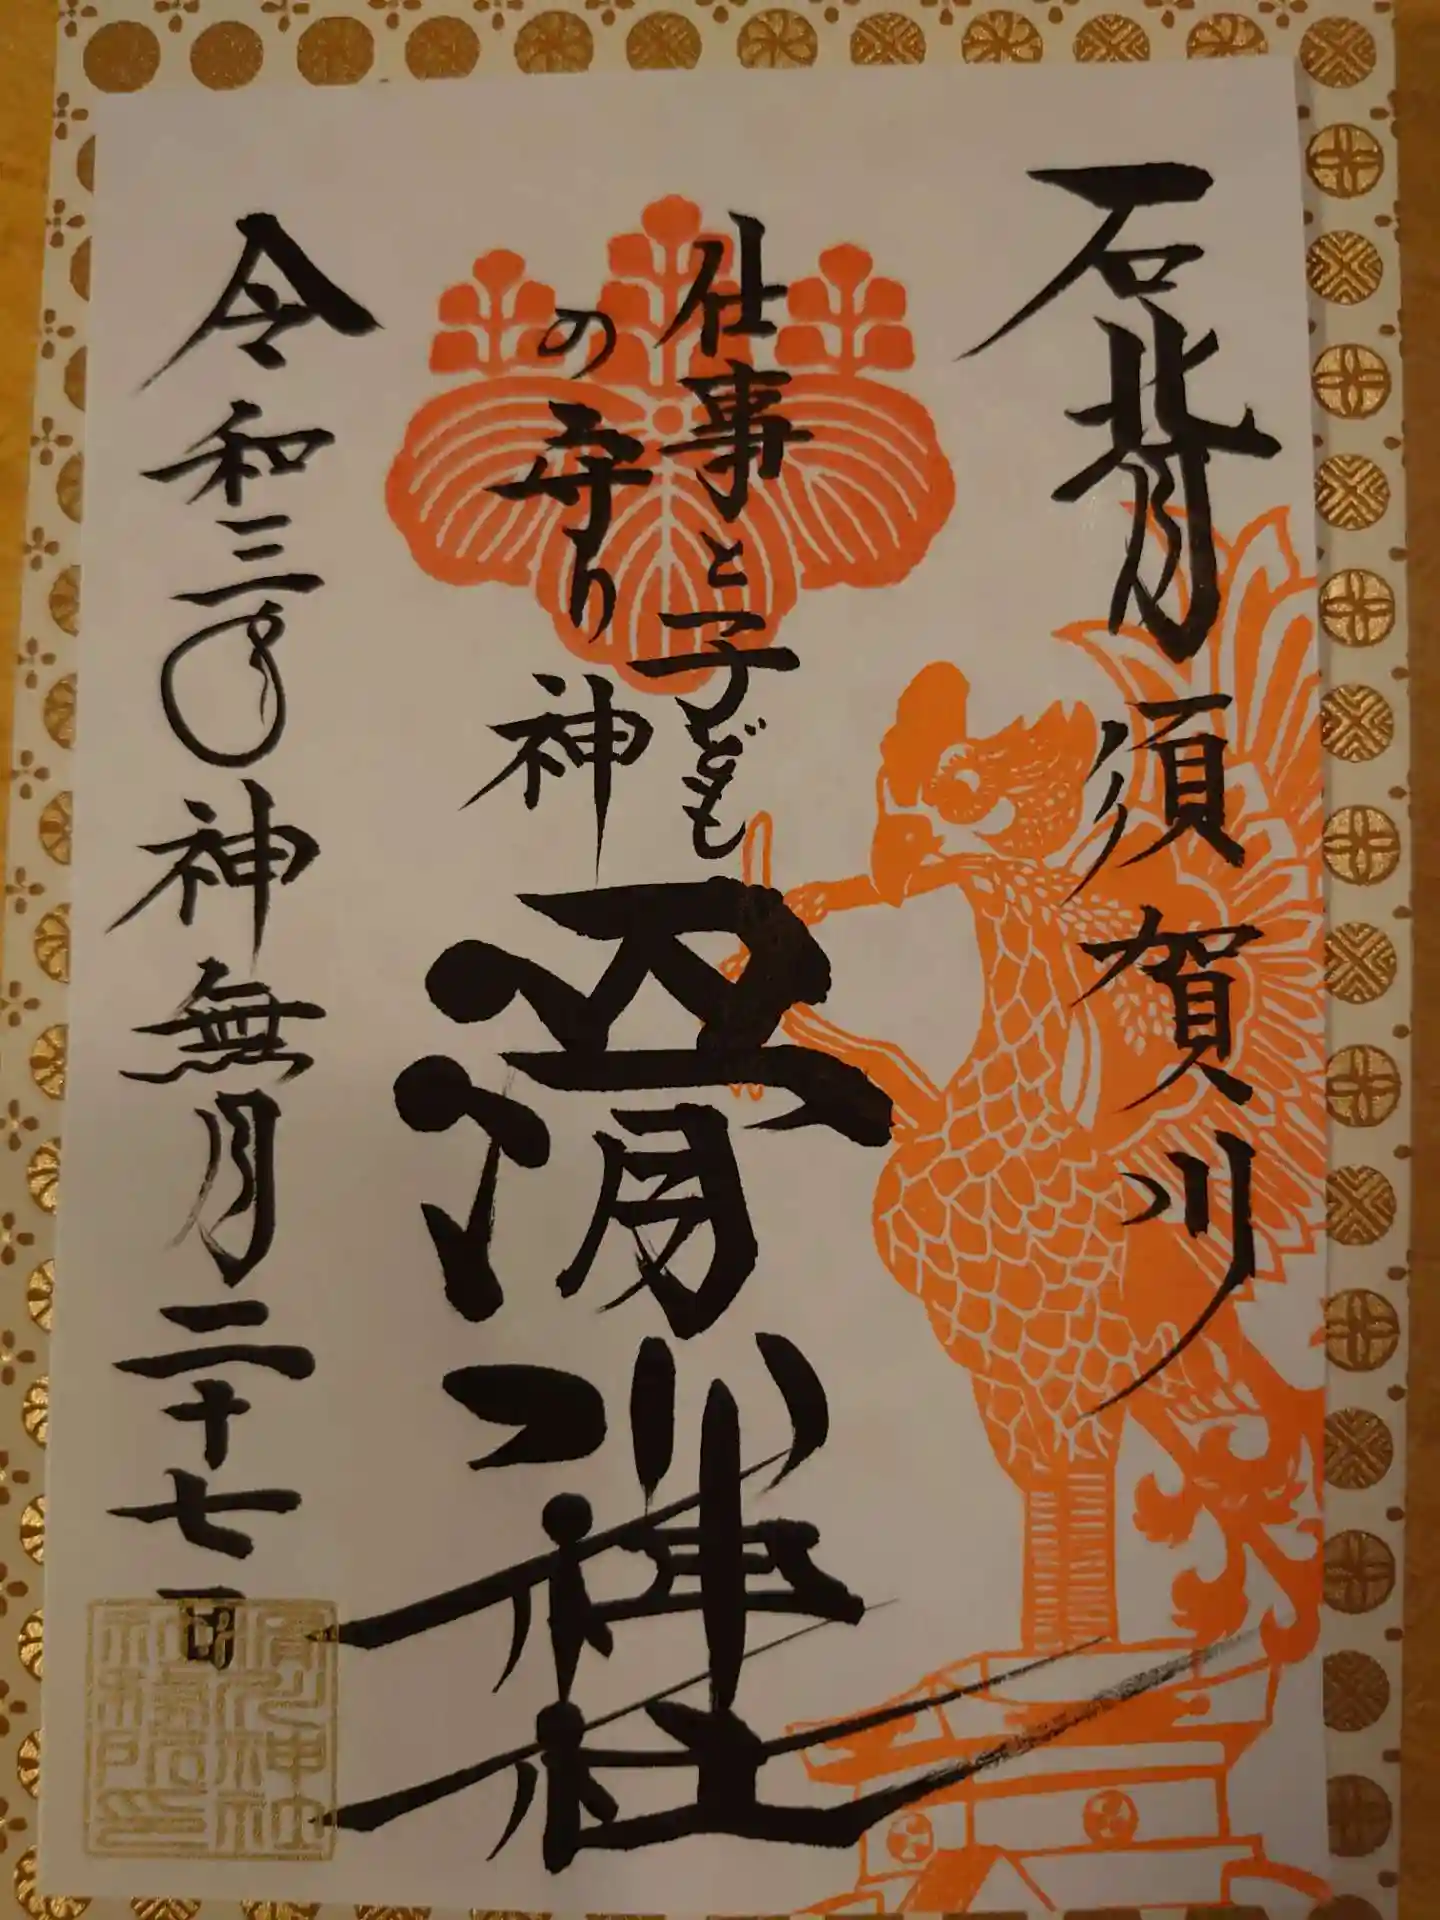 石背 須賀川
仕事と子ども
の守り神
滑川神社
令和三年神無月二十七日
滑川神社